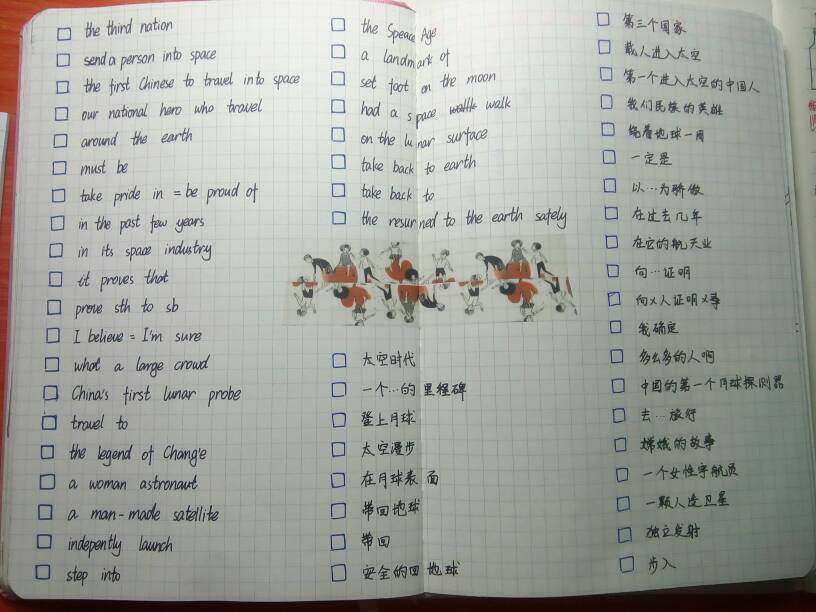 the third nation
send a person into space
the first Chinese to travel into space
our national hero who travel
around the earth
must be
take pride in = be proud of
in the past few years
in its space industry
it proves that
prove sth to sb
I believe = I'm sure
what a large crowd
China's first lunar probe
travel to
the legend of Chang'e
a woman astronaut
a man-made satellite
indepently launch
step into
the Speace Age
a landmark of
set foot on the moon
had a space walk
on the lunar surface
take back to earth
take back to
the resurned to the earth safely
太空时代
一个…的里程碑
登上月球
太空漫步
在月球表面
带回地球
带回
安全的回地球
第三个国家
载人进入太空
第一个进入太空的中国人
我们民族的英雄
绕着地球一周
一定是
以…为骄傲
在过去几年
在它的航天业
向…证明
向X人证明X事
我确定
多么多的人啊
中国的第一个月球探测器
去…旅行
嫦娥的故事
一个女性宇航员
一颗人造卫星
独立发射
步入